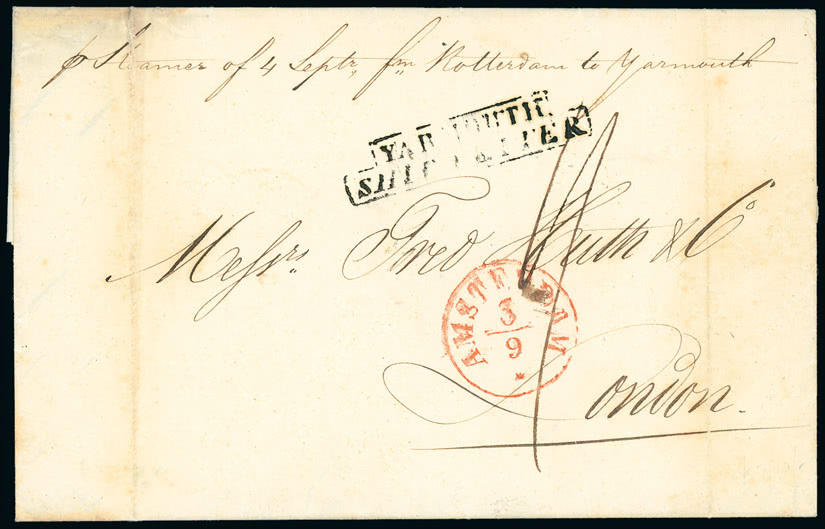 p Steamer of 4 Septr. fm Rotterdam to Yarmouth
YARMOUTH
SHIP LETTER
Messrs. Fred Huth & Co
AMSTERDAM
3
9
London.